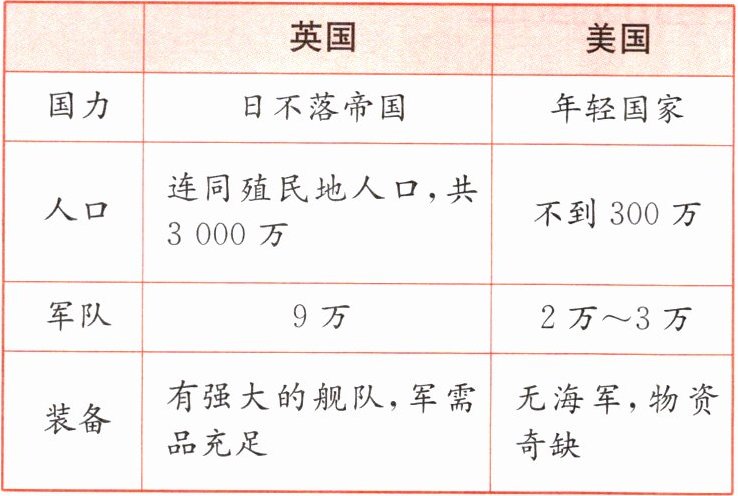 英国 美国
国力 日不落帝国 年轻国家
人口 连同殖民地人口,共
3 000 万 不到 300 万
军队 9 万 2 万～3 万
装备 有强大的舰队,军需
品充足 无海军,物资
奇缺